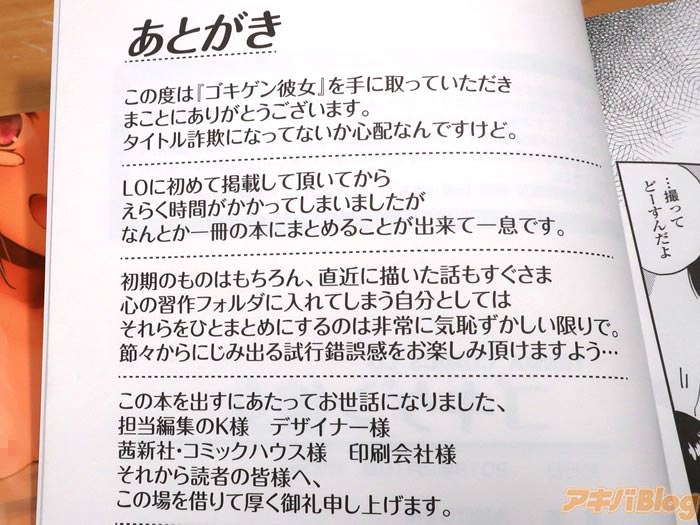 あとがき
この度は『ゴキゲン彼女』を手に取っていただき
まことにありがとうございます。
タイトル詐欺になってないか心配なんですけど。
LOに初めて掲載して頂いてから
えらく時間がかかってしまいましたが
なんとか一冊の本にまとめることが出来て一息です。
初期のものはもちろん、直近に描いた話もすぐさま
心の習作フォルダに入れてしまう自分としては
それらをひとまとめにするのは非常に気恥ずかしい限りで。
節々からにじみ出る試行錯誤感をお楽しみ頂けますよう…
この本を出すにあたってお世話になりました、
担当編集のK様　デザイナー様
茜新社・コミックハウス様　印刷会社様
それから読者の皆様へ、
この場を借りて厚く御礼申し上げます。
…撮って
どーすんだよ
アキバBlog